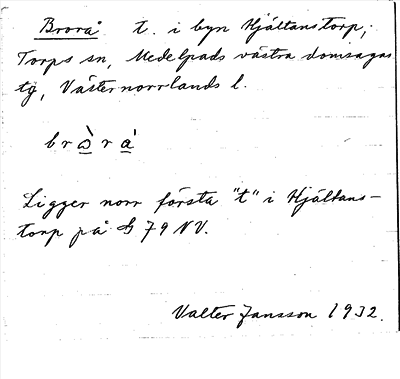 Brorå t. i byn Hjältanstorp,
Torps sn, Medelpads västra domsagas
tg, Västernorrlands l.
brɷ̀rá
Ligger norr första "t" i Hjältans-
torp på G 79 NV.
Valter Jansson 1932.